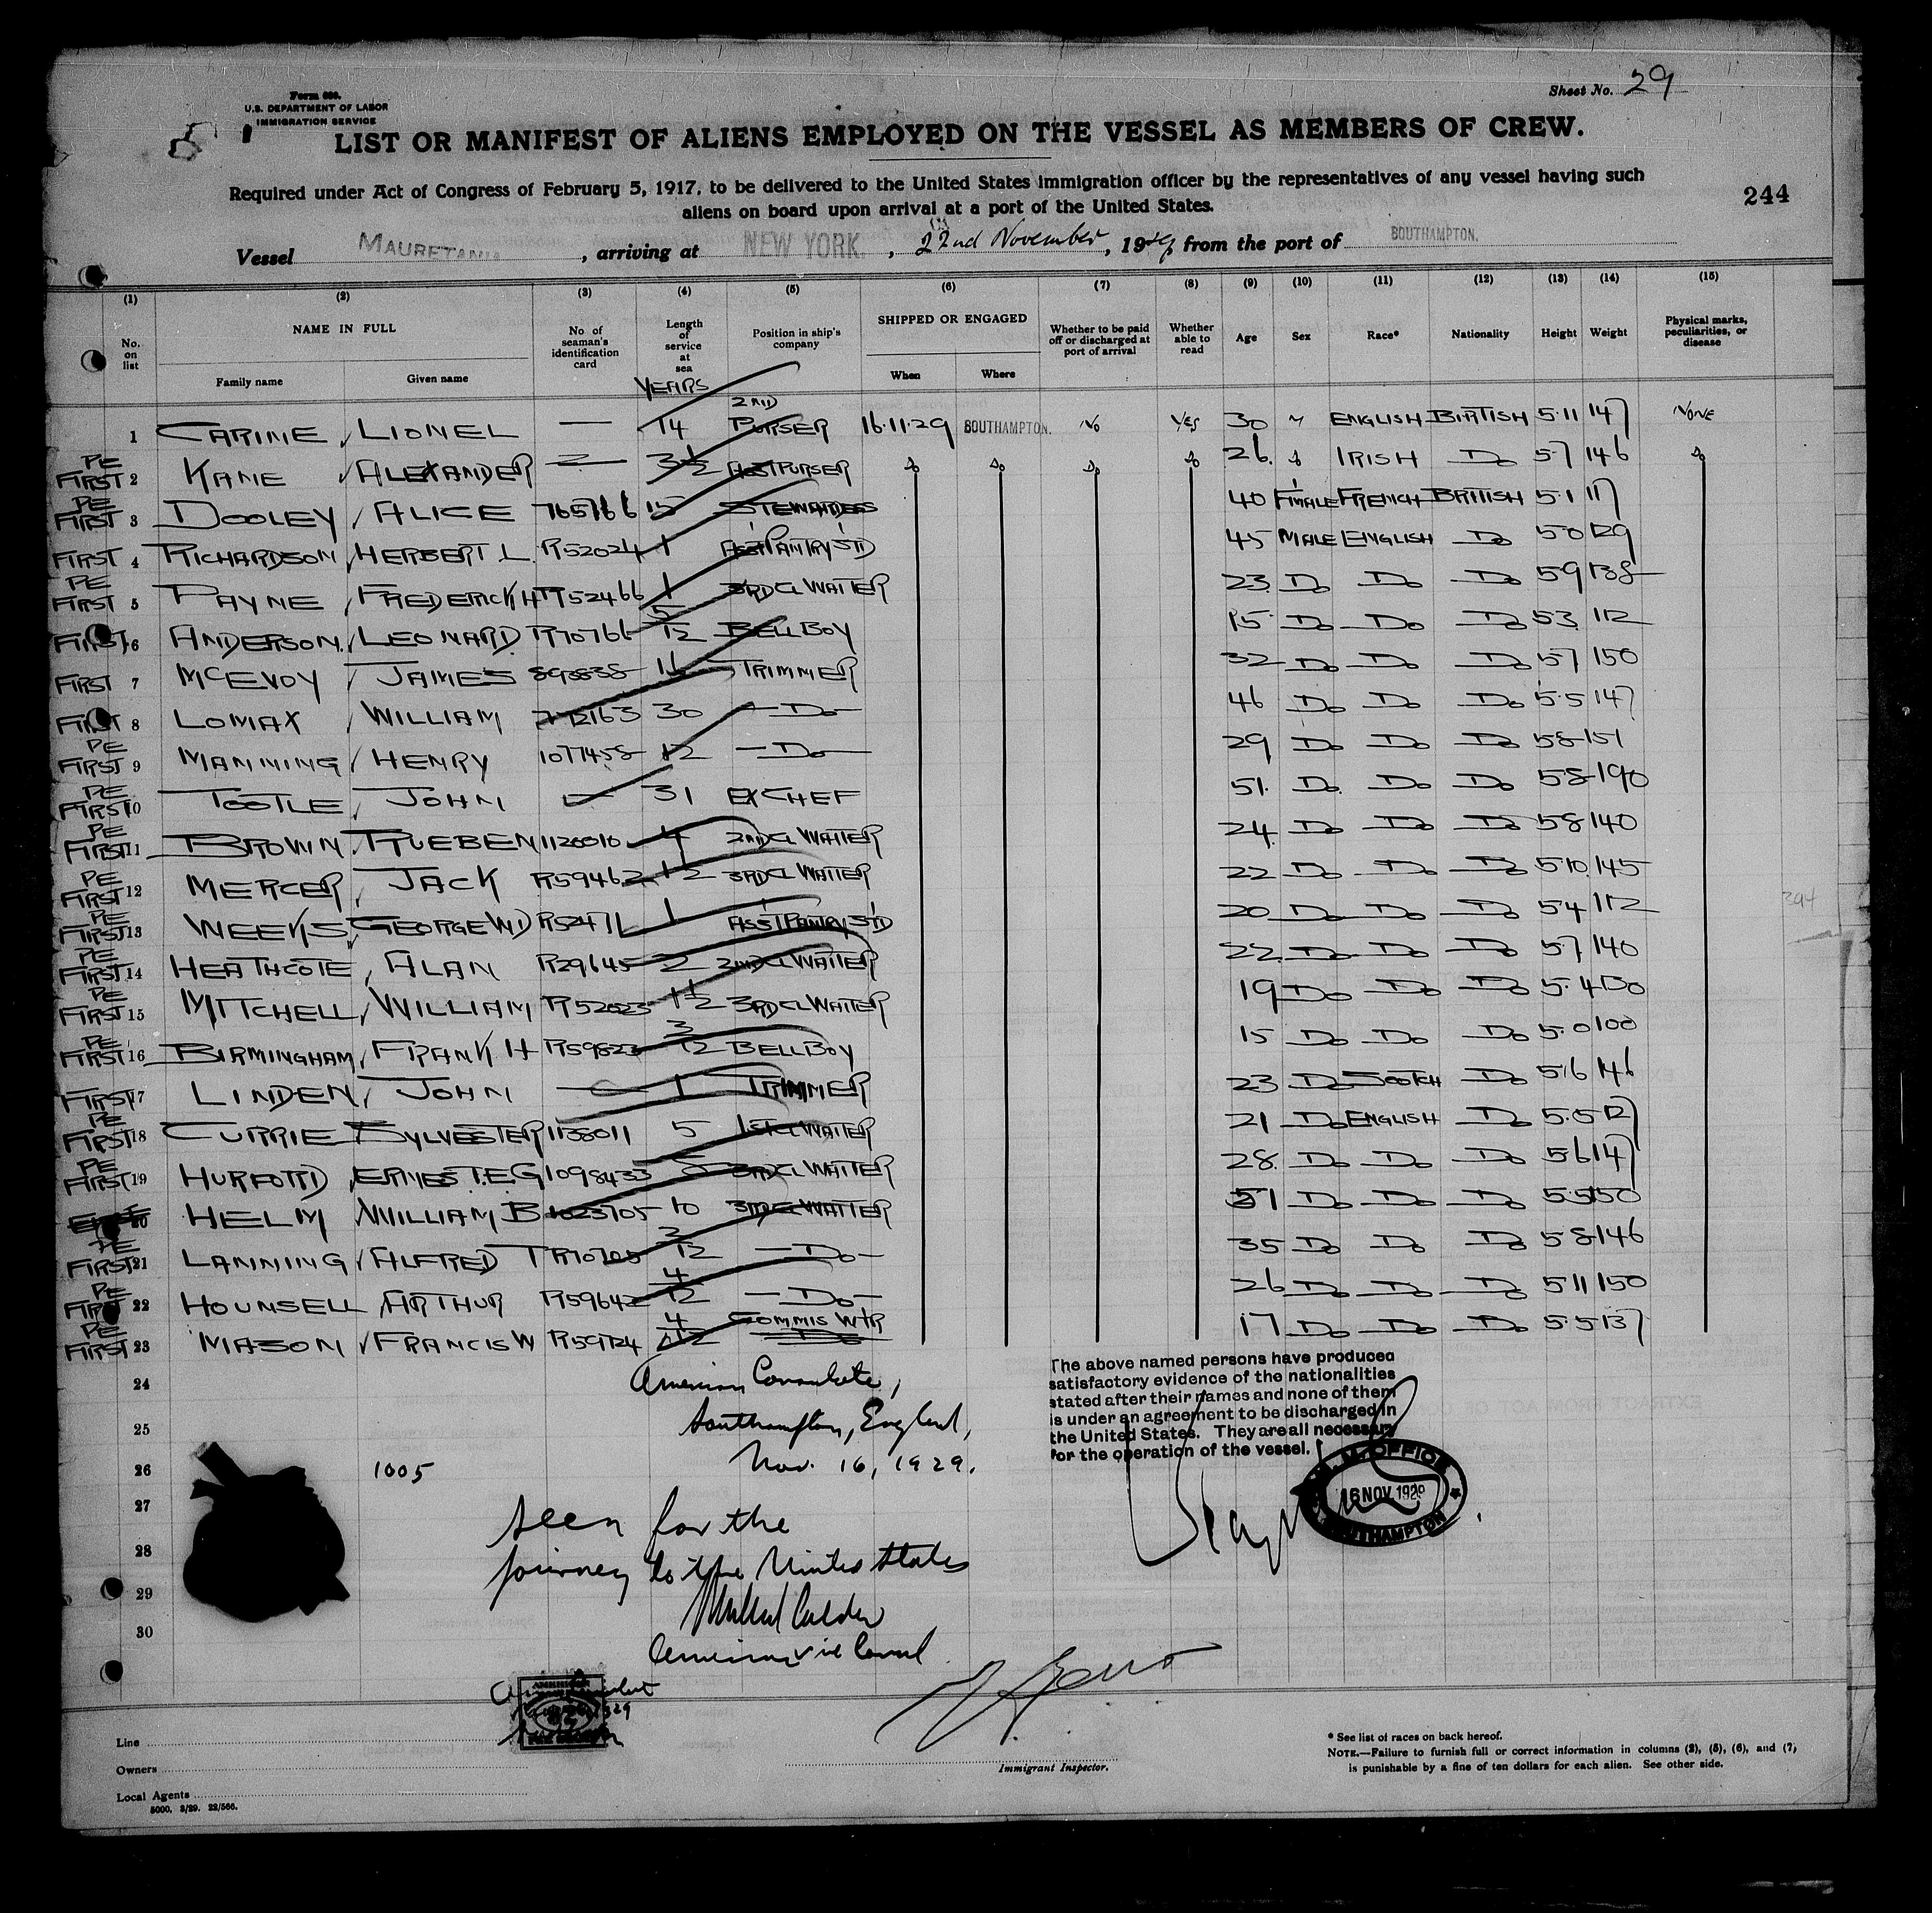 Form 680.
U.S. DEPARTMENT OF LABOR
IMMIGRATION SERVICE
Sheet No. 29
LIST OR MANIFEST OF ALIENS EMPLOYED ON THE VESSEL AS MEMBERS OF CREW.
Required under Act of Congress of February 5, 1917, to be delivered to the United States immigration officer by the representatives of any vessel having such
aliens on board upon arrival at a port of the United States.
244
Vessel MAURETANIA, arriving at NEW YORK, 22nd November, 1929 from the port of SOUTHAMPTON.
(1) (2) (3) (4) (5) (6) (7) (8) (9) (10) (11) (12) (13) (14) (15)
No. on list NAME IN FULL Family name Given name No. of seaman's identification card Length of service at sea Position in ship's company SHIPPED OR ENGAGED When Where Whether to be paid off or discharged at port of arrival Whether able to read Age Sex Race* Nationality Height Weight Physical marks, peculiarities, or disease
YEARS
1 CARINE LIONEL — 14 2ND PURSER 16.11.29 SOUTHAMPTON. No YES 30 M ENGLISH BIRTISH 5.11 147 NONE
PE FIRST 2 KANE ALEXANDER — 3½ ASST PURSER Do Do Do Do 26 Do IRISH Do 5.7 146 Do
PE FIRST 3 DOOLEY ALICE 765766 15 STEWARDESS 40 FEMALE FRENCH BRITISH 5.1 117
FIRST 4 RICHARDSON HERBERT L. R52024 1 ASST PANTRY STD 45 MALE ENGLISH Do 5 0 129
PE FIRST 5 PAYNE FREDERICK H R52466 1 3RD CL WAITER 23 Do Do Do 5 9 138
FIRST 6 ANDERSON LEONARD R70766 5/12 BELL BOY 15 Do Do Do 5 3 112
FIRST 7 MCEVOY JAMES 11 TRIMMER 32 Do Do Do 5 7 150
FIRST 8 LOMAX WILLIAM 30 —Do— 46 Do Do Do 5.5 147
PE FIRST 9 MANNING HENRY 1077458 12 —Do— 29 Do Do Do 5 8 151
PE FIRST 10 TOOTLE JOHN — 31 EX CHEF 51 Do Do Do 5.8 190
PE FIRST 11 BROWN RUEBEN 1126010 4 2ND CL WAITER 24 Do Do Do 5 8 140
PE FIRST 12 MERCER JACK R59462 ½ 3RD CL WAITER 22 Do Do Do 5.10 145
PE FIRST 13 WEEKS GEORGE WD R52471 1 ASST PANTRY STD 20 Do Do Do 5 4 112
PE FIRST 14 HEATHCOTE ALAN R29645 2 2ND CL WAITER 22 Do Do Do 5.7 140
PE FIRST 15 MITCHELL WILLIAM R52023 1½ 3RD CL WAITER 19 Do Do Do 5.4 130
PE FIRST 16 BIRMINGHAM FRANK H R59823 3/12 BELL BOY 15 Do Do Do 5.0 100
FIRST 17 LINDEN JOHN — 1 TRIMMER 23 Do SCOTCH Do 5.6 146
PE FIRST 18 CURRIE SYLVESTER 1138011 5 1ST CL WAITER 21 Do ENGLISH Do 5.5 127
PE FIRST 19 HURFORD ERNEST E G 1098433 5 3RD CL WAITER 28 Do Do Do 5 6 147
20 HELM WILLIAM B 1023705 10 3RD CL WAITER 51 Do Do Do 5.5 150
PE FIRST 21 LANNING ALFRED T R70705 3/12 —Do— 35 Do Do Do 5 8 146
PE FIRST 22 HOUNSELL ARTHUR R59642 4/12 —Do— 26 Do Do Do 5 11 150
PE FIRST 23 MASON FRANCIS W R59724 4/12 COMMIS WTR 17 Do Do Do 5.5 137
394
24
25
26
27
28
29
30
American Consulate,
Southampton, England,
Nov. 16, 1929.
1005
Seen for the
journey to the United States
American Vice Consul
The above named persons have produced
satisfactory evidence of the nationalities
stated after their names and none of them
is under an agreement to be discharged in
the United States. They are all necessary
for the operation of the vessel.
M.M. OFFICE
16 NOV 1929
SOUTHAMPTON
Line
Owners
Local Agents
5000. 3/29. 22/566.
Immigrant Inspector.
* See list of races on back hereof.
NOTE.—Failure to furnish full or correct information in columns (2), (5), (6), and (7),
is punishable by a fine of ten dollars for each alien. See other side.